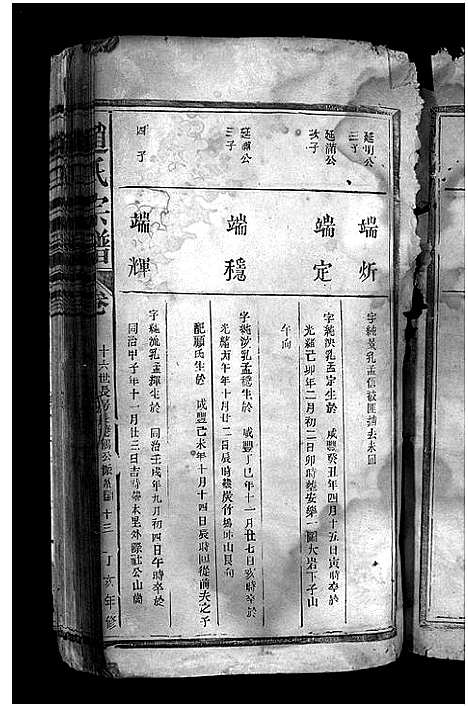 延明公
三子
端炘
字純羲乳孟信被匪擄去未回
延滿公
次子
端定
字純決乳孟定生於 咸豐癸丑年四月十五日寅時卒於
光緒己卯年二月初二日卯時葬安樂一圖大岩下子山
午向
延滿公
三子
端穩
字純波乳孟穩生於 咸豐丁巳年十一月廿七日亥時卒於
光緒丙午年十月廿二日辰時葬炭竹塢坤山艮向
配顧氏生於 咸豐己未年十月十四日辰時回從前夫之子
四子
端輝
字純流乳孟輝生於 同治壬戌年九月初四日午時卒於
同治甲子年十一月廿三日吉時葬木里外源社公山崗
趙氏宗譜
卷
十六世長 十三
丁亥年修